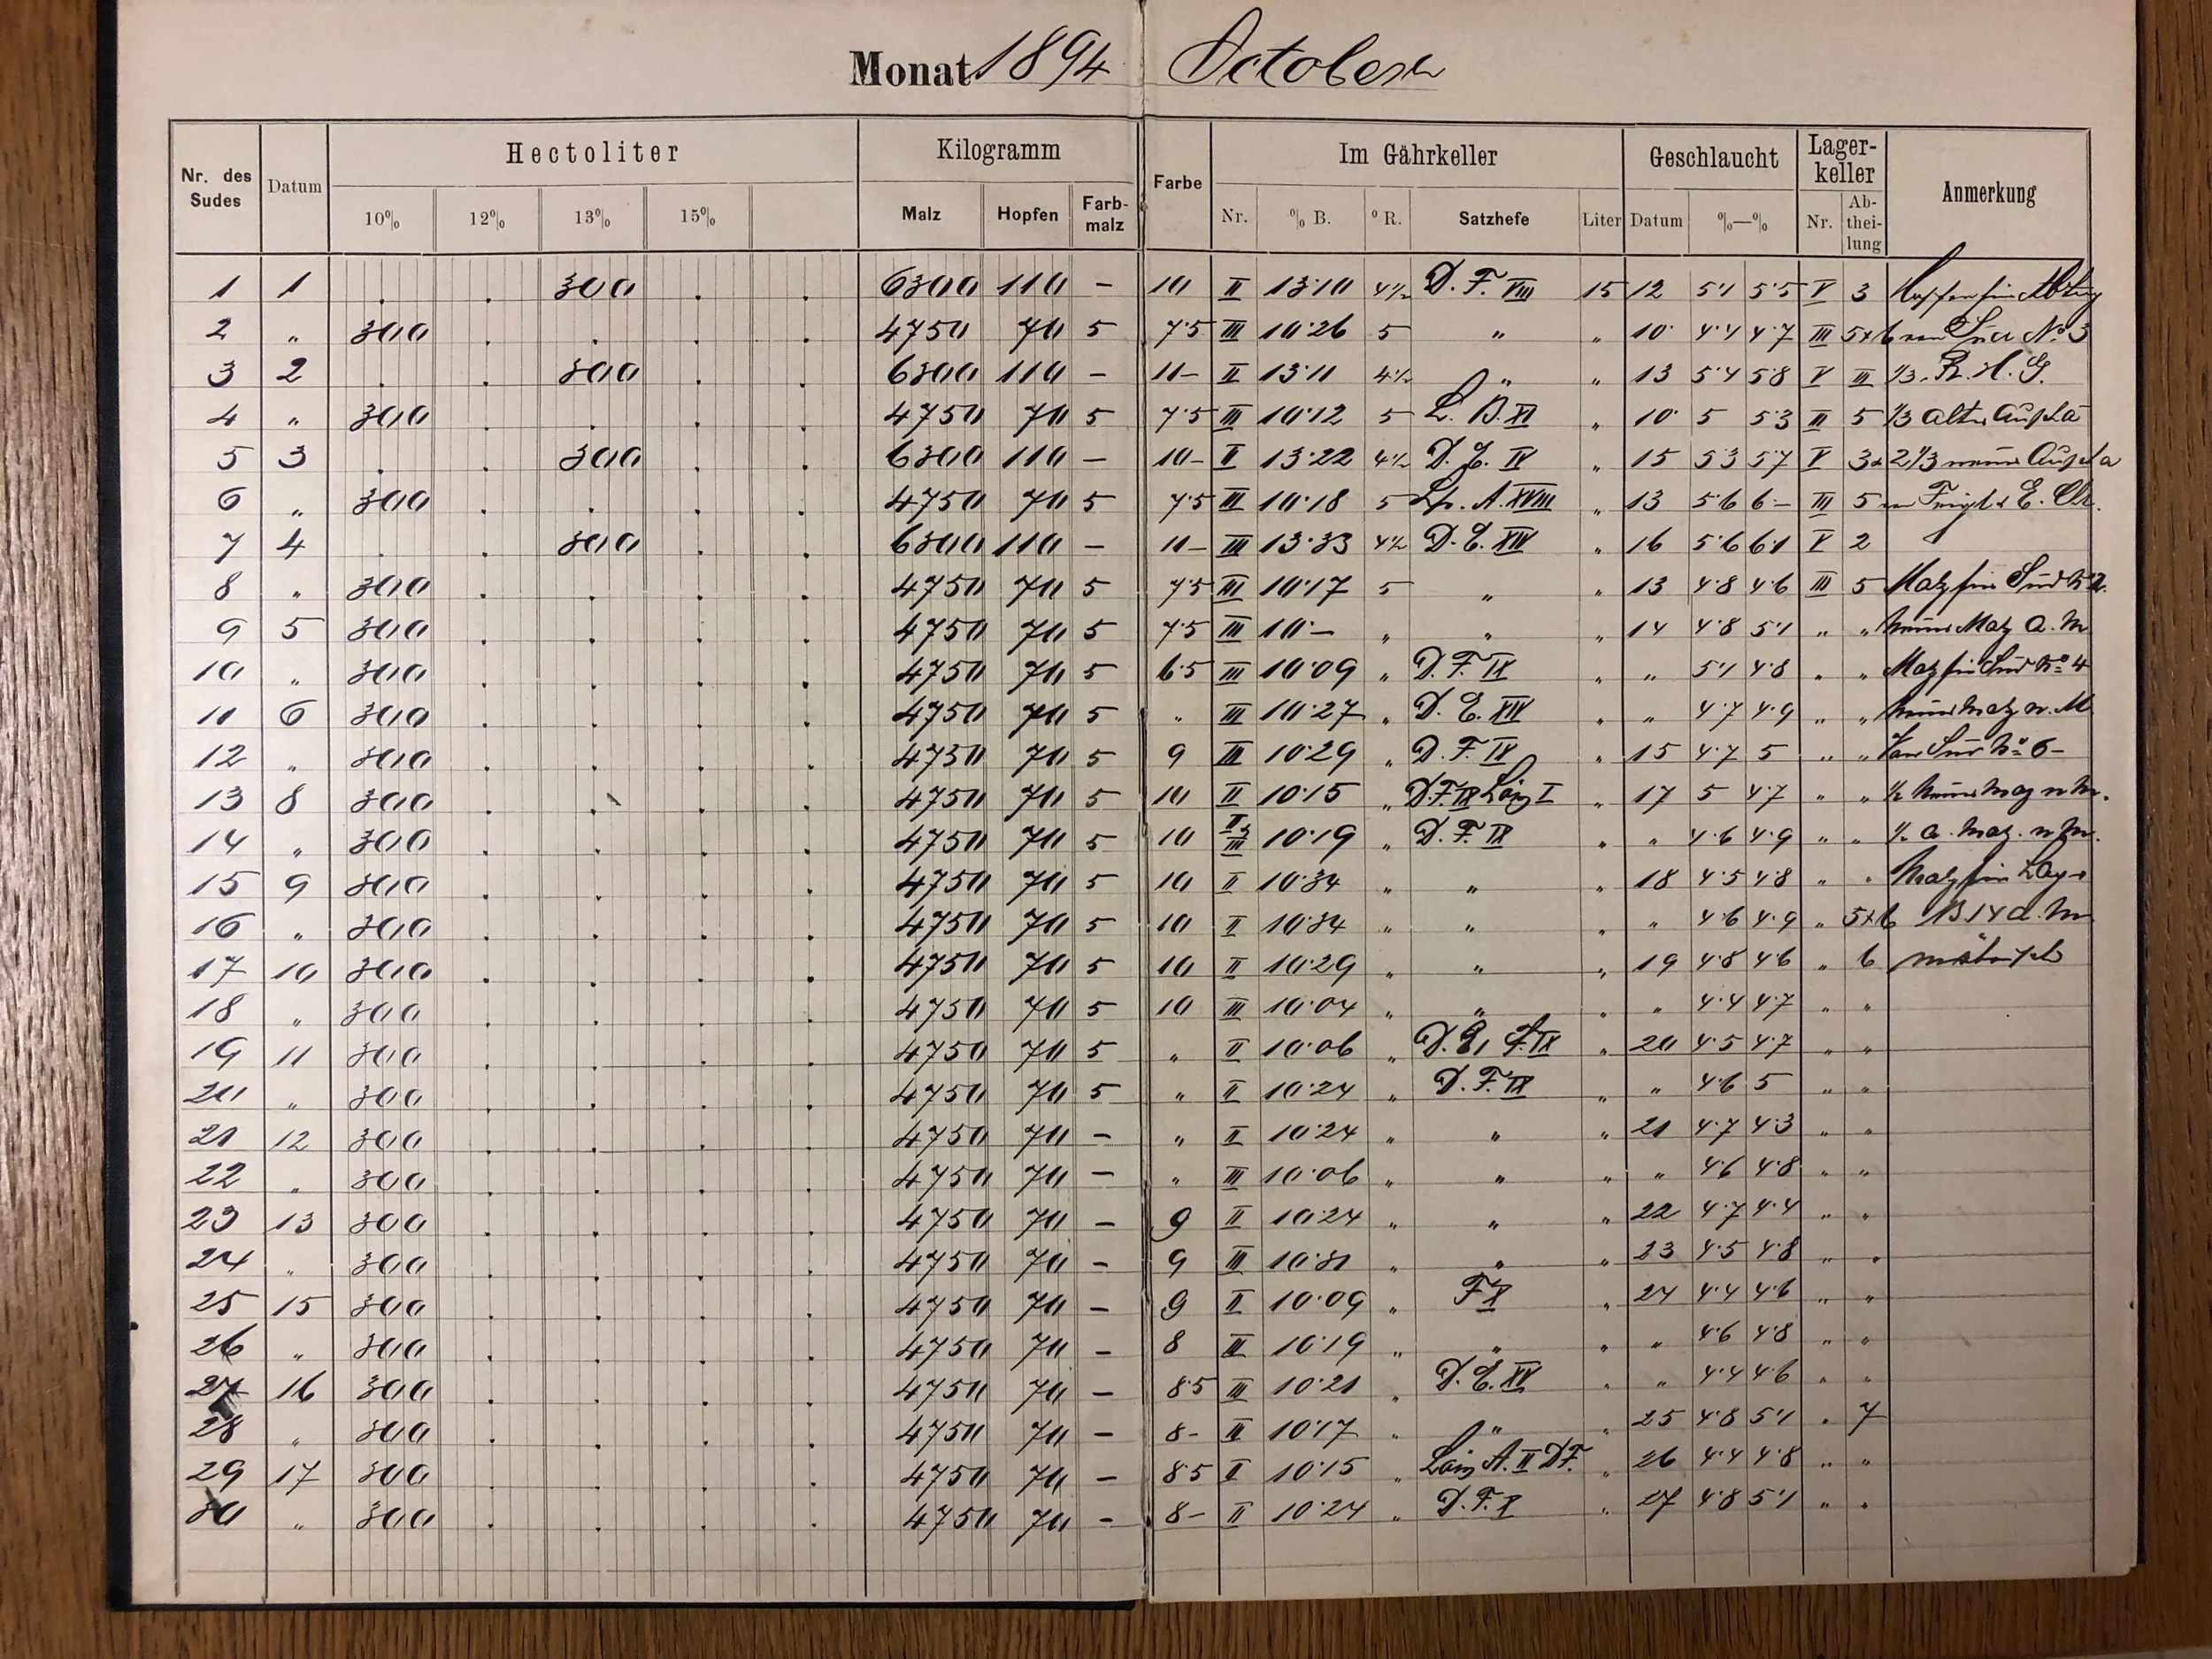 Monat 1894 October
Nr. des Sudes Datum Hectoliter Kilogramm Farbe Im Gährkeller Geschlaucht Lager-keller Anmerkung
10% 12% 13% 15% Malz Hopfen Farb-malz Nr. % B. ° R. Satzhefe Liter Datum %—% Nr. Ab-thei-lung
1 1 . . 300 . . 6300 110 – 10 II 13·10 4½ D. F. VIII 15 12 5·1 5·5 V 3
2 " 300 . . . . 4750 70 5 7·5 III 10·26 5 " " 10 4·4 4·7 III 5+6 No 3
3 2 . . 300 . . 6300 110 – 11– II 13·11 4½ " " 13 5·4 5·8 V III ⅓
4 " 300 . . . . 4750 70 5 7·5 III 10·12 5 L. B. XI " 10 5 5·3 III 5 ⅓ alter
5 3 . . 300 . . 6300 110 – 10– II 13·22 4½ D. E. IV " 15 5·3 5·7 V
6 " 300 . . . . 4750 70 5 7·5 III 10·18 5 Lp. A. XVIII " 13 5·6 6– III 5
7 4 . . 300 . . 6300 110 – 11– III 13·33 4½ D. E. XIV " 16 5·6 6·1 V 2
8 " 300 . . . . 4750 70 5 7·5 III 10·17 5 " " 13 4·8 4·6 III 5 Malz für Sud
9 5 300 . . . . 4750 70 5 7·5 III 10·– " " " 14 4·8 5·1 " " Malz a. M
10 " 300 . . . . 4750 70 5 6·5 III 10·09 " D. F. IX " " 5·1 4·8 " " Malz für Sud No 4
11 6 300 . . . . 4750 70 5 " III 10·27 " D. E. XIV " " 4·7 4·9 " " Malz n. M
12 " 300 . . . . 4750 70 5 9 III 10·29 " D. F. IX " 15 4·7 5 " " Sud No 6–
13 8 300 . . . . 4750 70 5 10 II 10·15 " D. F. IX I " 17 5 4·7 " " ½
14 " 300 . . . . 4750 70 5 10 II & III 10·19 " D. F. IX " " 4·6 4·9 " " ½ a. Malz
15 9 300 . . . . 4750 70 5 10 II 10·34 " " " 18 4·5 4·8 " " Malz für
16 " 300 . . . . 4750 70 5 10 II 10·34 " " " " 4·6 4·9 " 5+6
17 10 300 . . . . 4750 70 5 10 II 10·29 " " " 19 4·8 4·6 " 6
18 " 300 . . . . 4750 70 5 10 III 10·04 " " " " 4·4 4·7 " "
19 11 300 . . . . 4750 70 5 " II 10·06 " D. E, F. IX " 20 4·5 4·7 " "
20 " 300 . . . . 4750 70 5 " II 10·24 " D. F. IX " " 4·6 5 " "
21 12 300 . . . . 4750 70 – " II 10·24 " " " 21 4·7 4·3 " "
22 " 300 . . . . 4750 70 – " III 10·06 " " " " 4·6 4·8 " "
23 13 300 . . . . 4750 70 – 9 II 10·24 " " " 22 4·7 4·4 " "
24 " 300 . . . . 4750 70 – 9 III 10·31 " " " 23 4·5 4·8 " "
25 15 300 . . . . 4750 70 – 9 II 10·09 " F X " 24 4·4 4·6 " "
26 " 300 . . . . 4750 70 – 8 III 10·19 " " " " 4·6 4·8 " "
27 16 300 . . . . 4750 70 – 8·5 III 10·21 " D. E. XV " " 4·4 4·6 " "
28 " 300 . . . . 4750 70 – 8– II 10·17 " " " 25 4·8 5·1 " 7
29 17 300 . . . . 4750 70 – 8·5 II 10·15 " A. II D F. " 26 4·4 4·8 " "
30 " 300 . . . . 4750 70 – 8– II 10·24 " D. F. X " 27 4·8 5·1 " "